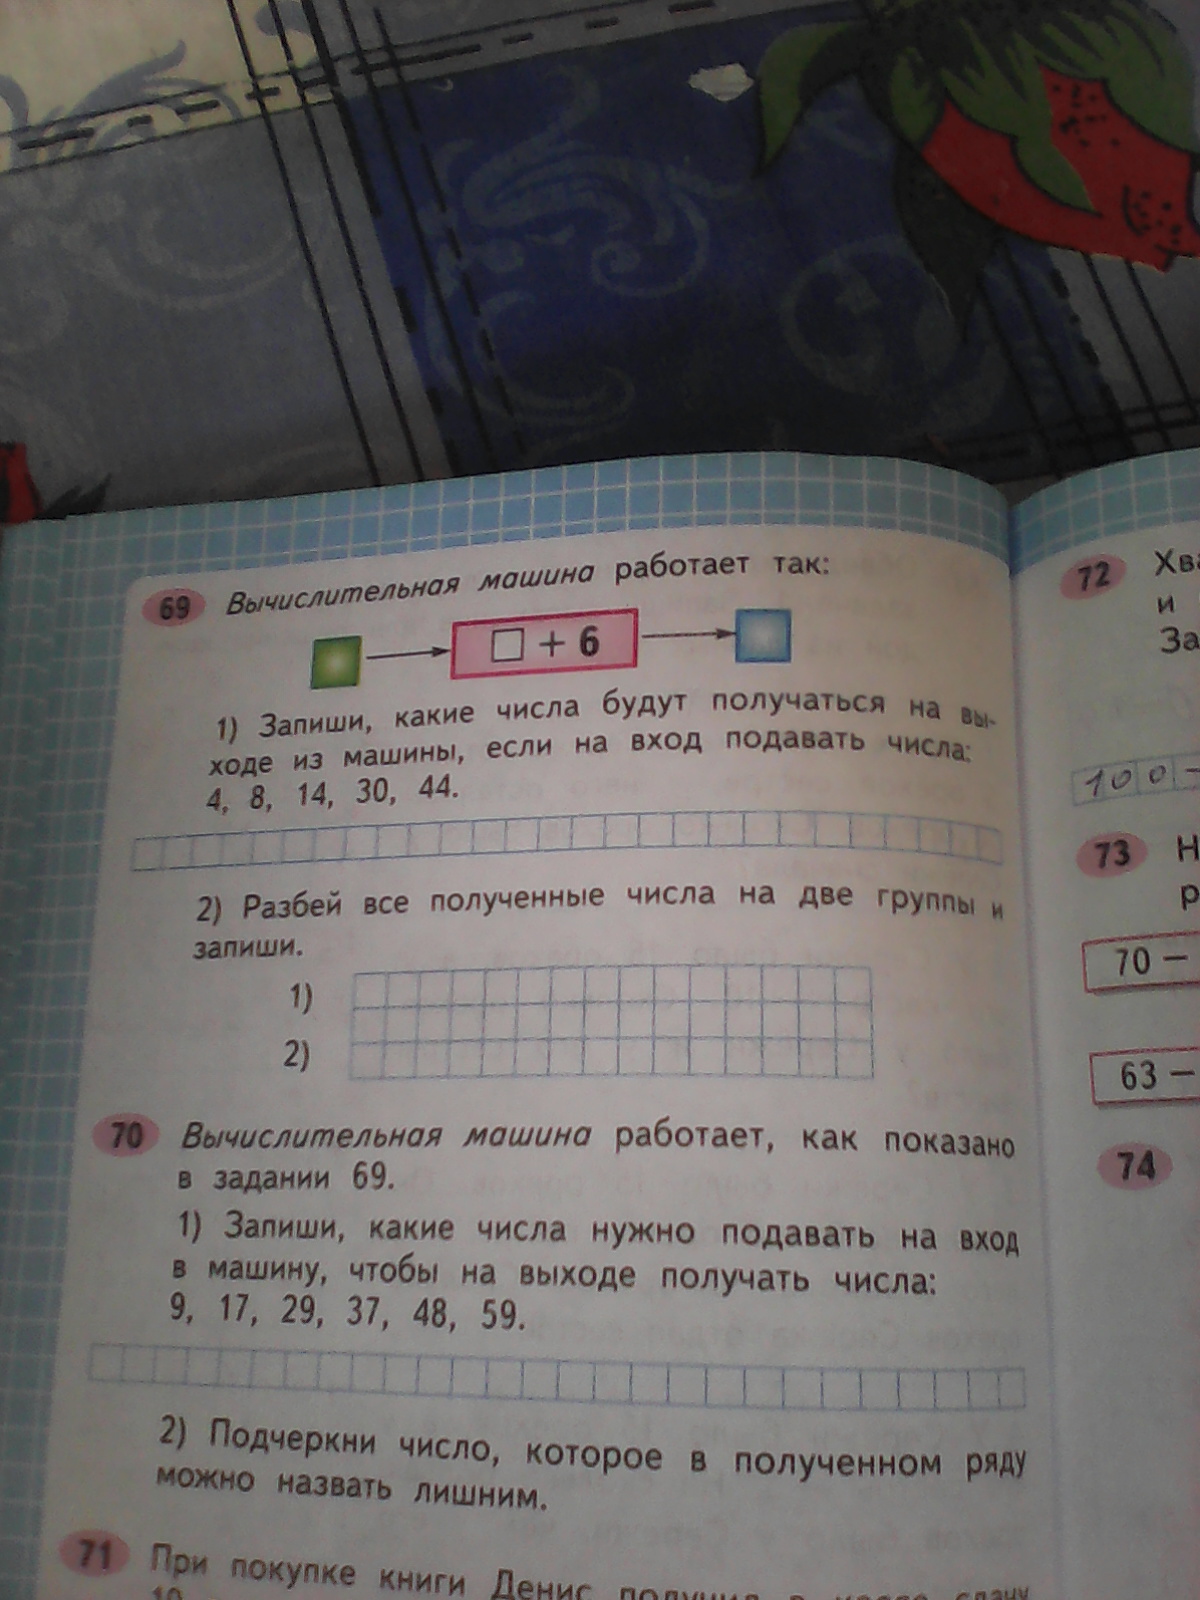 69 Вычислительная машина работает так:
□ + 6
1) Запиши, какие числа будут получаться на вы-
ходе из машины, если на вход подавать числа:
4, 8, 14, 30, 44.
2) Разбей все полученные числа на две группы и
запиши.
1)
2)
70 Вычислительная машина работает, как показано
в задании 69.
1) Запиши, какие числа нужно подавать на вход
в машину, чтобы на выходе получать числа:
9, 17, 29, 37, 48, 59.
2) Подчеркни число, которое в полученном ряду
можно назвать лишним.
71 При покупке книги Денис получил в кассе сдачу
10
72 Хва
и
За
100 -
73 Н
р
70 -
63 -
74